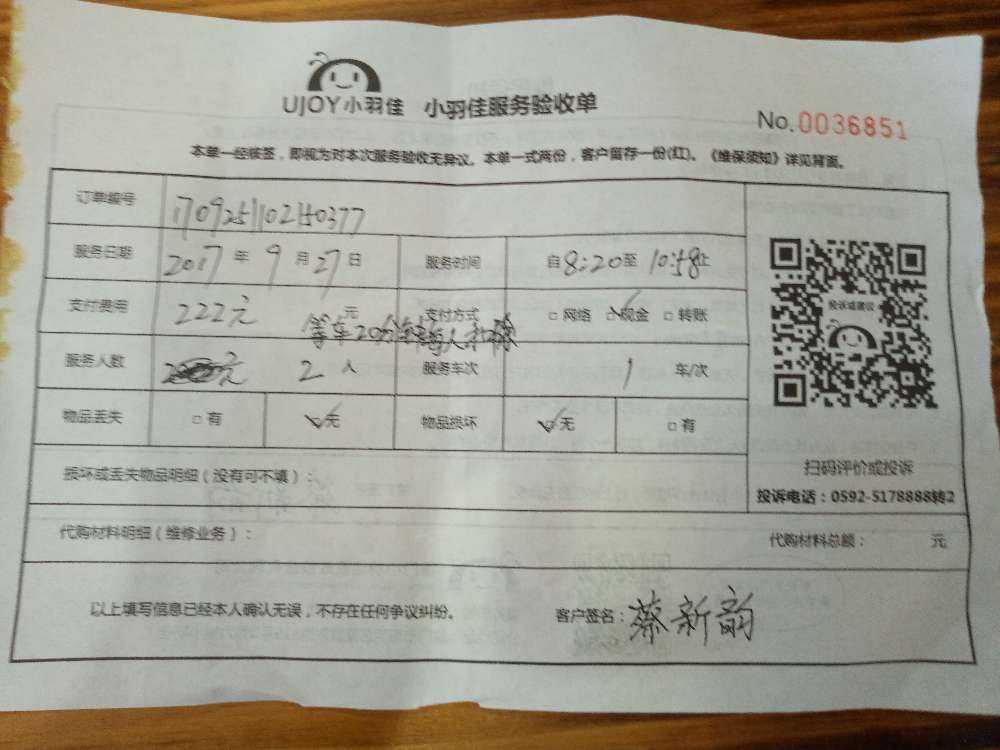 UJOY小羽佳 小羽佳服务验收单
No.0036851
本单一经核签，即视为对本次服务验收无异议。本单一式两份，客户留存一份(红)。《维保须知》详见背面。
订单编号
服务日期 2017 年 9 月 27 日 服务时间 自8:20至 10:58止
支付费用 222元 元 支付方式 □网络 ☑现金 □转账
等车20分钟
服务人数 元 2 人 服务车次 1 车/次
物品丢失 □有 ☑无 物品损坏 ☑无 □有
投诉或建议
扫码评价或投诉
投诉电话：0592-5178888转2
损坏或丢失物品明细（没有可不填）：
代购材料明细（维修业务）： 代购材料总额： 元
以上填写信息已经本人确认无误，不存在任何争议纠纷。 客户签名：蔡新韵